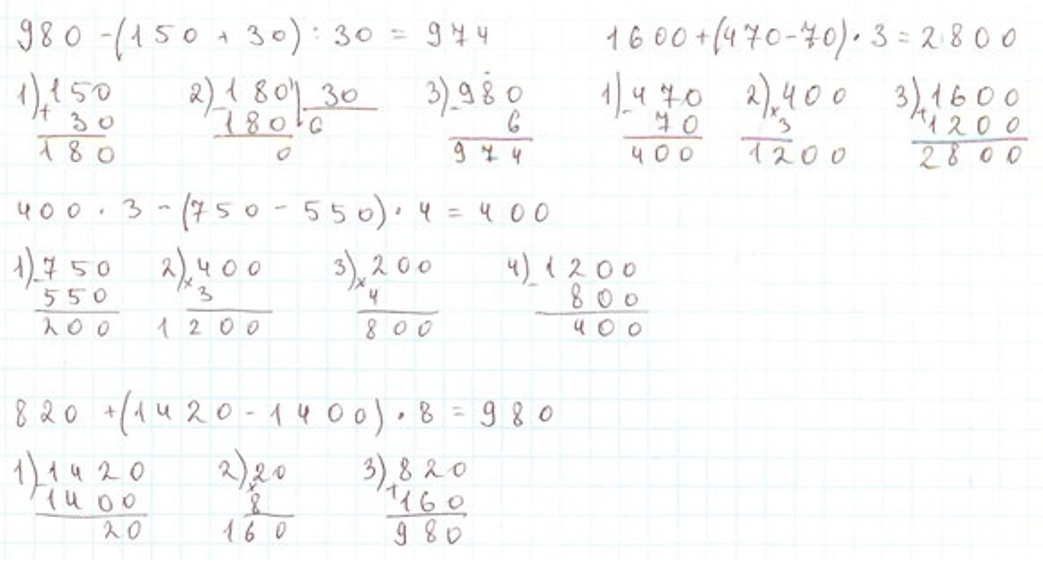 980 - (150 + 30) : 30 = 974
1) 150 + 30 = 180
2) 180 | 30
180 | 6
0
3) 980 - 6 = 974
1600 + (470 - 70) · 3 = 2800
1) 470 - 70 = 400
2) 400 × 3 = 1200
3) 1600 + 1200 = 2800
400 · 3 - (750 - 550) · 4 = 400
1) 750 - 550 = 200
2) 400 × 3 = 1200
3) 200 × 4 = 800
4) 1200 - 800 = 400
820 + (1420 - 1400) · 8 = 980
1) 1420 - 1400 = 20
2) 20 × 8 = 160
3) 820 + 160 = 980